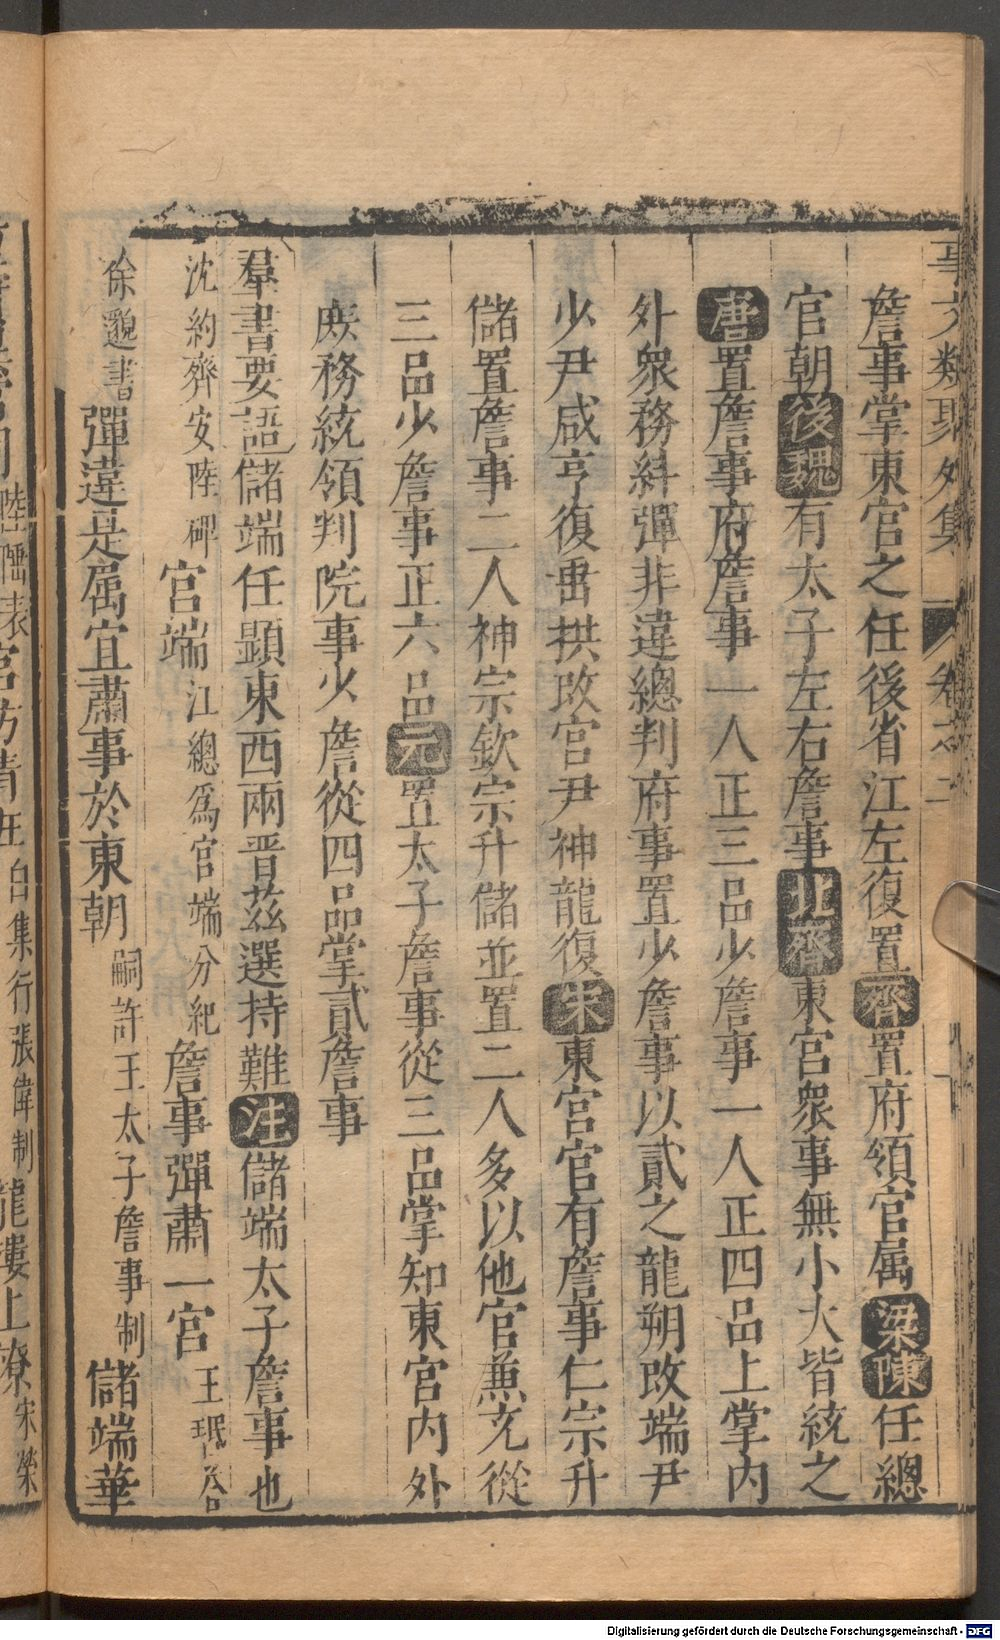 事文類聚外集 卷之二
詹事掌東宮之任後省江左復置齊置府領官属梁陳任總
官朝後魏有太子左右詹事北齊東宮衆事無小大皆統之
唐置詹事府詹事一人正三品少詹事一人正四品上掌内
外衆務糾彈非違總判府事置少詹事以貳之龍朔改端尹
少尹咸亨復舊拱改宮尹神龍復宋東宮官有詹事仁宗升
儲置詹事二人神宗欽宗升儲並置二人多以他官兼充從
三品少詹事正六品元置太子詹事從三品掌知東宮内外
庶務統領判院事少詹從四品掌貳詹事
羣書要語儲端任顯東西兩晋兹選持難注儲端太子詹事也
沈約齊安陸碑宮端江總爲宮端分紀詹事彈肅一宮王珉答
徐邈書彈違是属宜肅事於東朝嗣許王太子詹事制儲端華
陸嶲表宮坊清白集行張偉制龍樓上寮宋榮
Digitalisierung gefördert durch die Deutsche Forschungsgemeinschaft - DFG